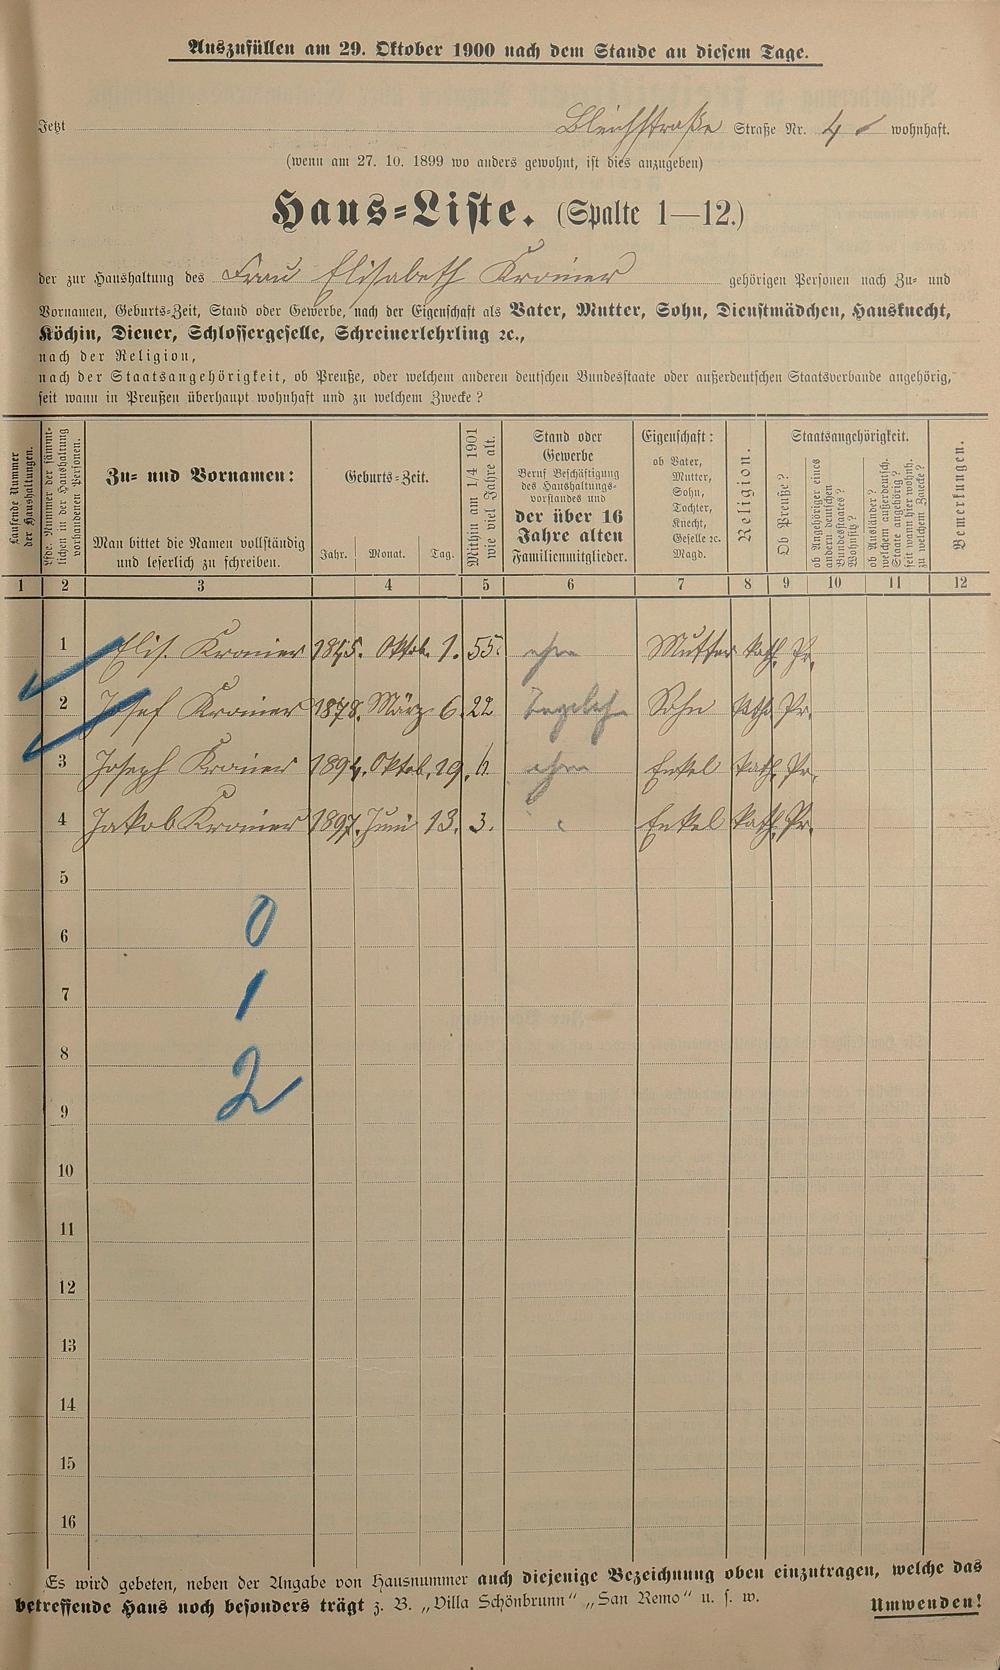 Auszufüllen am 29. Oktober 1900 nach dem Stande an diesem Tage.
Jetzt Bleichstraße Straße Nr. 4 wohnhaft.
(wenn am 27. 10. 1899 wo anders gewohnt, ist dies anzugeben)
Haus=Liste. (Spalte 1—12.)
der zur Haushaltung des Frau Elisabeth Kroner gehörigen Personen nach Zu= und
Vornamen, Geburts=Zeit, Stand oder Gewerbe, nach der Eigenschaft als Vater, Mutter, Sohn, Dienstmädchen, Hausknecht,
Köchin, Diener, Schlossergeselle, Schreinerlehrling ꝛc.,
nach der Religion,
nach der Staatsangehörigkeit, ob Preuße, oder welchem anderen deutschen Bundesstaate oder außerdeutschen Staatsverbande angehörig,
seit wann in Preußen überhaupt wohnhaft und zu welchem Zwecke?
Laufende Nummer
der Haushaltungen.
Lfde. Nummer der sämmt=
lichen in der Haushaltung
vorhandenen Personen.
Zu= und Vornamen:
Man bittet die Namen vollständig
und leserlich zu schreiben.
Geburts=Zeit.
Jahr. Monat. Tag.
Mithin am 1/4 1901
wie viel Jahre alt.
Stand oder
Gewerbe
Beruf Beschäftigung
des Haushaltungs=
vorstandes und
der über 16
Jahre alten
Familienmitglieder.
Eigenschaft:
ob Vater,
Mutter,
Sohn,
Tochter,
Knecht,
Geselle ꝛc.
Magd.
Religion.
Staatsangehörigkeit.
Ob Preuße?
ob Angehöriger eines
andern deutschen
Bundesstaates?
Wohnsitz?
ob Ausländer?
welchem außerdeutsch.
Staate angehörig?
seit wann hier wohnh.
zu welchem Zwecke?
Bemerkungen.
1 2 3 4 5 6 7 8 9 10 11 12
1 Elis. Kroner 1845. Oktob. 1. 55. ohne Mutter kath. Pr.
2 Josef Kroner 1878. März 6. 22 Taglöh Sohn kath. Pr.
3 Joseph Kroner 1894. Oktob. 19. 6. ohne Enkel kath. Pr.
4 Jakob Kroner 1897. Juni 13. 3. " Enkel kath. Pr.
5
6 0
7 1
8
9 2
10
11
12
13
14
15
16
Es wird gebeten, neben der Angabe von Hausnummer auch diejenige Bezeichnung oben einzutragen, welche das
betreffende Haus noch besonders trägt z. B. „Villa Schönbrunn" „San Remo" u. s. w. Umwenden!